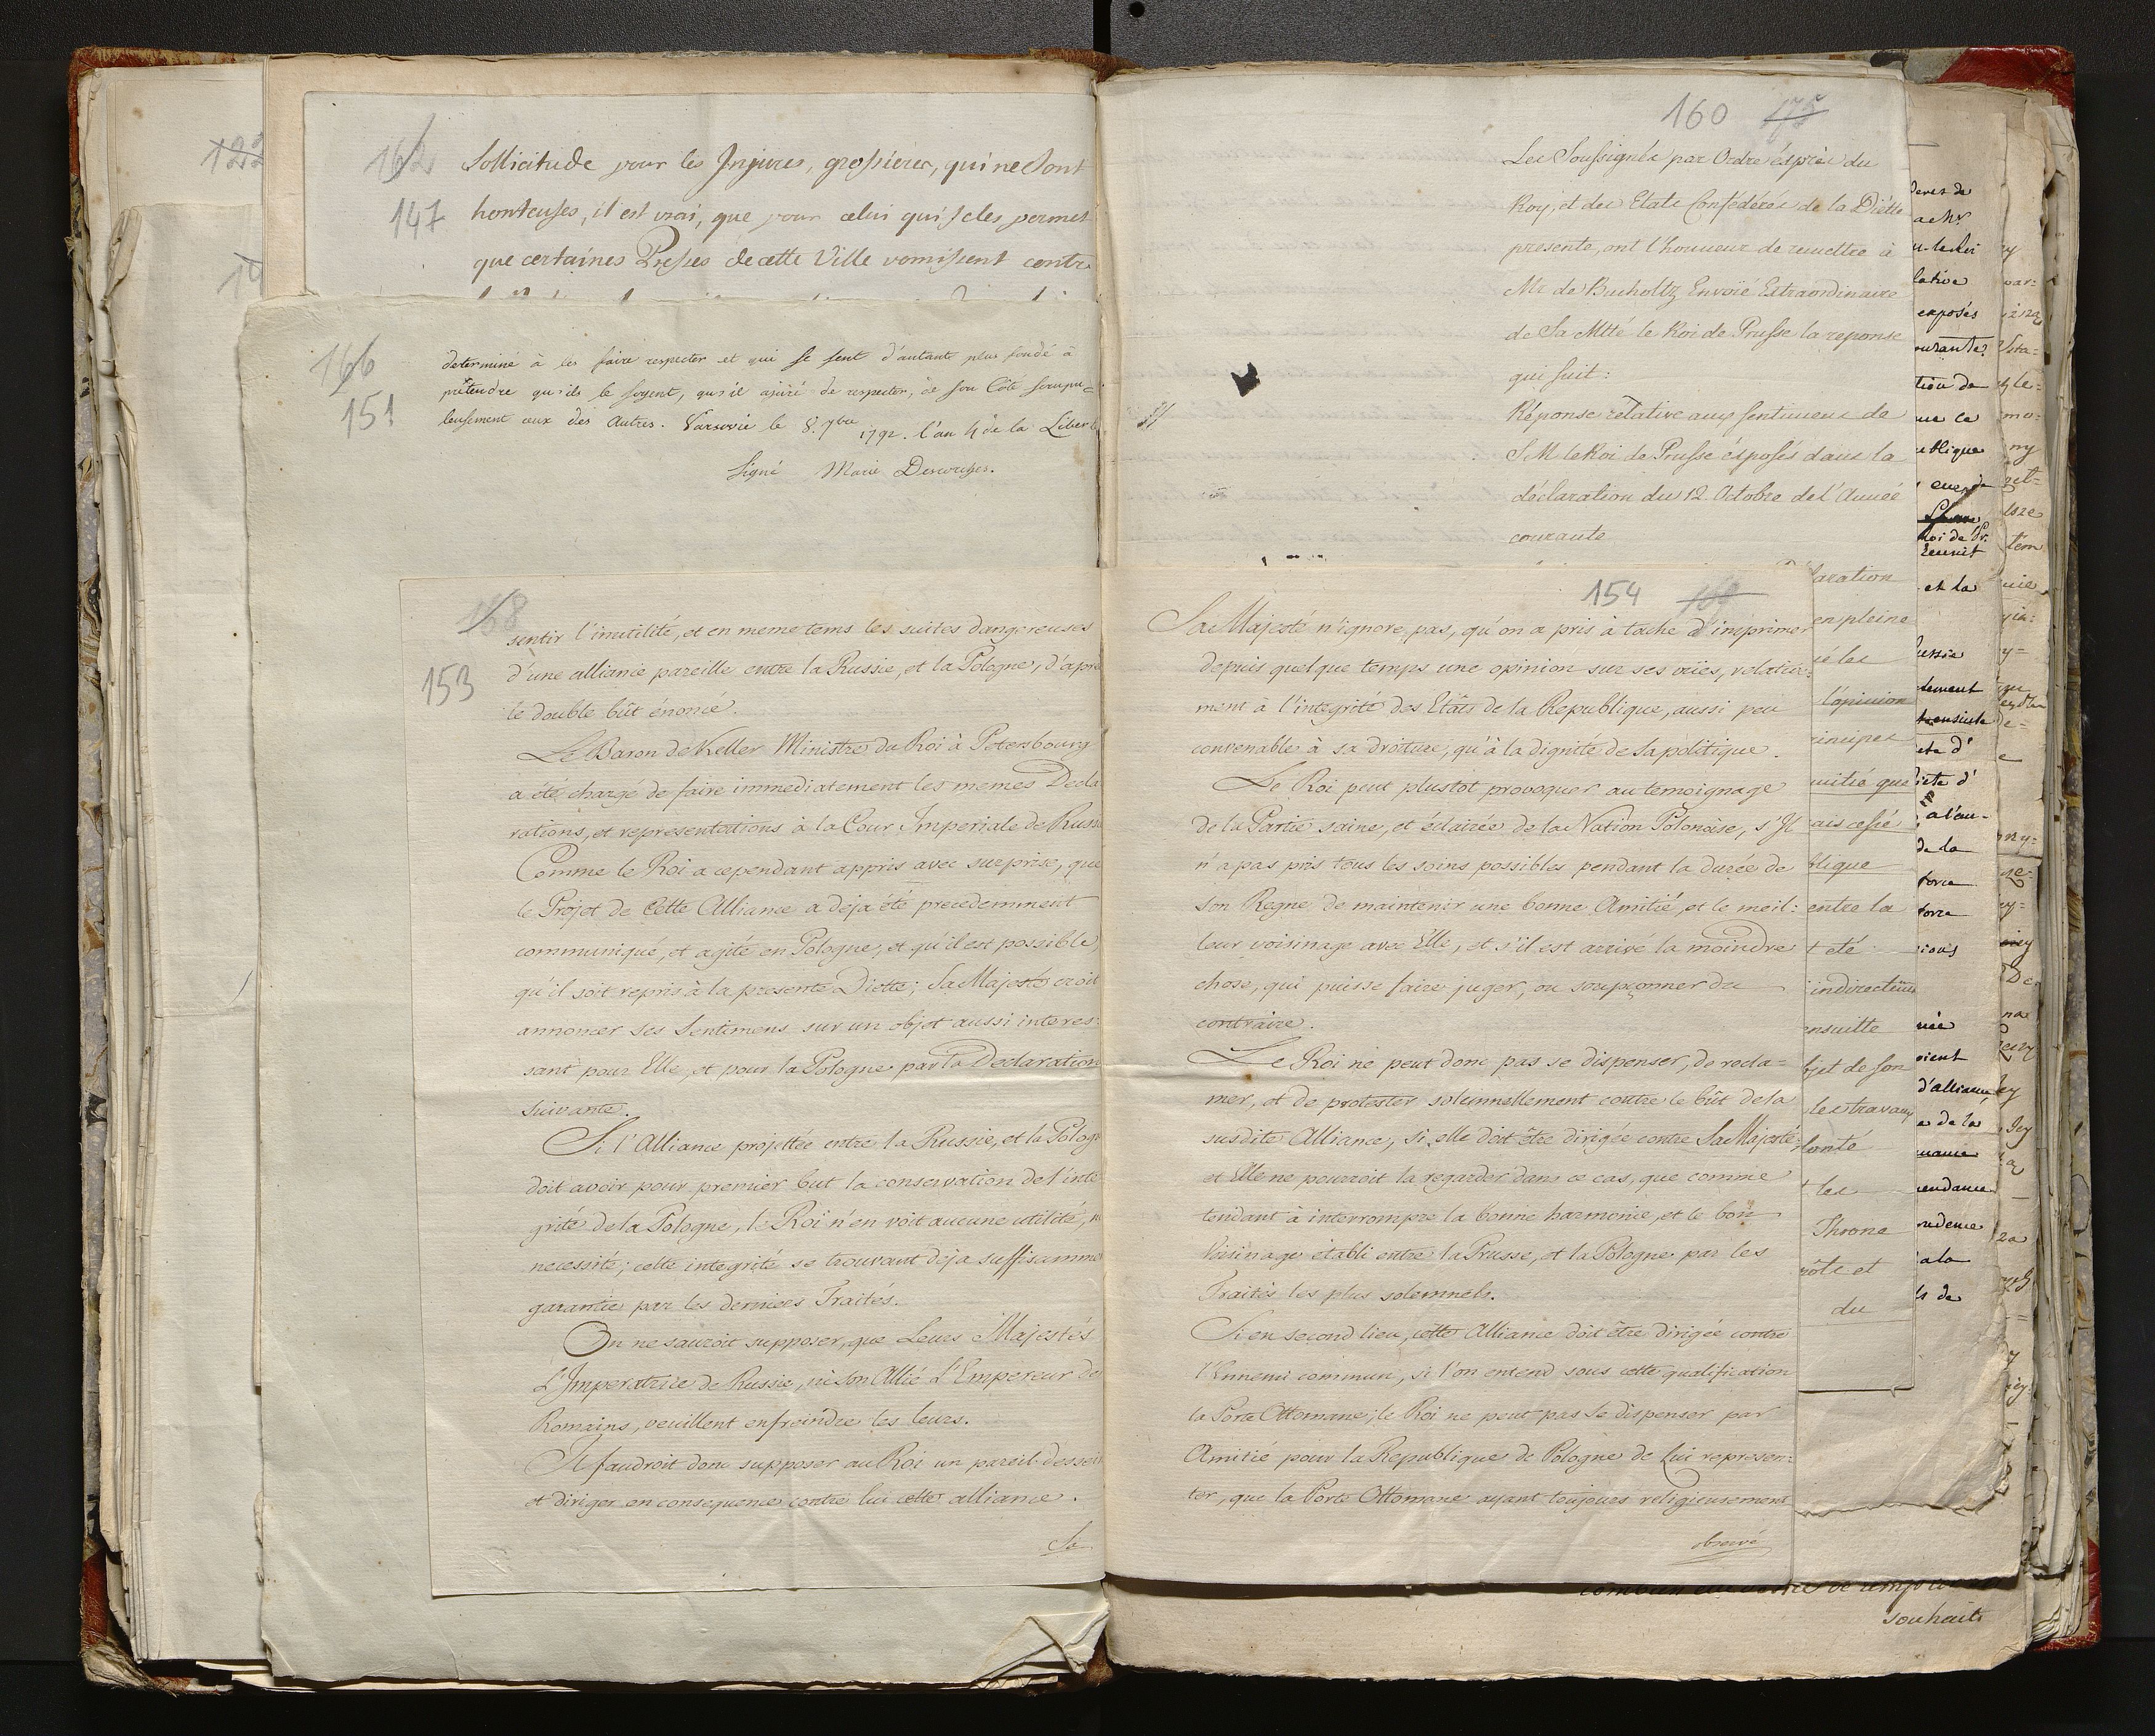 162
147
Sollicitude pour les Injures, grossieres, qui ne sont
honteuses, il est vrai, que pour celui qui se les permet
que certaines Presses de cette Ville vomissent contre
166
151
determiné à les faire respecter et qui se sent d'autant plus fondé à
prétendre qu'ils le soyent, qu'il a juré de respecter, de son Côté scrupu=
leusement ceux des Autres. Varsovie le 8. 7bre 1792. l'an 4 de la Liberté
Signé Marie Descorches.
168
153
sentir l'inutilité, et en meme tems les suites dangereuses
d'une alliance pareille entre la Russie, et la Pologne, d'apre
le double bût énoncé.
Le Baron de Keller Ministre du Roi à Petersbourg
a été chargé de faire immediatement les memes Decla
rations, et representations à la Cour Imperiale de Russ
Comme le Roi a cependant appris avec surprise, que
le Projet de Cette Alliance a deja été precedemment
communiqué, et agité en Pologne, et qu'il est possible,
qu'il soit repris à la presente Diette; Sa Majesté croit
annoncer ses Sentimens sur un objet aussi interes:
sant pour Elle, et pour la Pologne par la Declaration
suivante.
Si l'Alliance projettée entre la Russie, et la Polog
doit avoir pour premier but la conservation de l'inte
grité de la Pologne, le Roi n'en voit aucune utilité, n
necessité; cette integrité se trouvant deja suffisamme
garantie par les derniers Traités.
On ne sauroit supposer, que Leurs Majestés
L'Imperatrice de Russie, ni Son Allié l'Empereur de
Romains, veuillent enfreindre les leurs.
Il faudroit donc supposer au Roi un pareil dessei
et diriger en consequence contre lui cette alliance.
Sa
160 175
Les Soussignés par Ordre éxprès du
Roy, et des Etats Confédérés de la Diètte
presente, ont l'honneur de remettre à
Mr de Bucholtz Envoié Extraordinaire
de Sa Mtté le Roi de Prusse la reponse
qui suit:
Réponse relative aux sentimens de
S.M le Roi de Prusse éxposés dans la
déclaration du 12 Octobre de l'Année
courante
154
Sa Majesté n'ignore pas, qu'on a pris à tache d'imprimer
depuis quelque temps une opinion sur ses vües, relative:
ment à l'integrité des Etâts de la Republique, aussi peu
convenable à sa droiture, qu'à la dignité de sa politique.
Le Roi peut plustot provoquer au temoignage
de la Partie saine, et éclairée de la Nation Polonoise, s'Il
n'a pas pris tous les soins possibles pendant la durée de
son Regne de maintenir une bonne Amitié, et le meil:
leur voisinage avec Elle, et s'il est arrivé la moindre
chose, qui puisse faire juger, ou soupçonner du
contraire.
Le Roi ne peut donc pas se dispenser, de recla=
mer, et de protester solennellement contre le bût de la
susdite Alliance, si elle doit être dirigée contre Sa Majesté;
et Elle ne pourroit la regarder dans ce cas, que comme
tendant à interrompre la bonne harmonie, et le bon
Voisinage établi entre la Prusse, et la Pologne par les
Traités les plus solemnels.
Si en second lieu, cette Alliance doit être dirigée contre
l'Ennemi commun, si l'on entend sous cette qualification
la Porte Ottomane; le Roi ne peut pas se dispenser par
Amitié pour la Republique de Pologne de Lui represen:
ter, que la Porte Ottomane ayant toujours religieusement
observé
laration
en pleine
l'opinion
rincipes
mitié que
ais cessé
blique
entre la
t eté
ensuitte
bjet de son
les travaux
lonté
t les
Throne
du
exposés
tion de
ublique
et la
tement
a l'au-
de la
force
d'alliance
e de la
pendance
souhaits